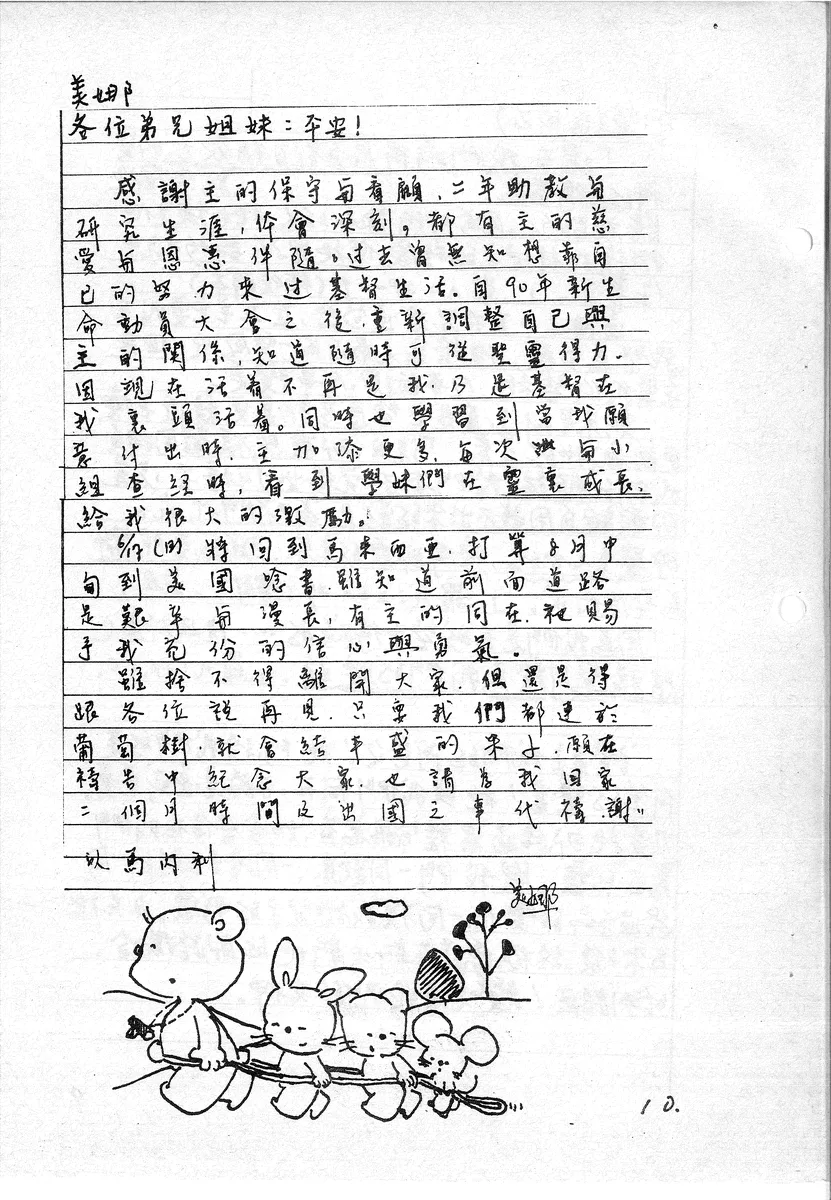 美娜
各位弟兄姐妹：平安！
感謝主的保守與看顧，二年助教與
研究生涯，体會深刻。都有主的慈
愛與恩惠伴隨。过去曾無知想靠自
己的努力來过基督生活。自90年新生
命動員大會之後，重新調整自己與
主的関係，知道隨時可從聖靈得力。
因現在活着不再是我，乃是基督在
我裏頭活着。同時也學習到當我願
意付出時，主加添更多，每次與小
組查經時，看到學妹們在靈裏成長，
給我很大的激勵。
6/17（日）將回到馬來西亞，打算8月中
旬到美國唸書，雖知道前面道路
是艱辛與漫長，有主的同在，祂賜
予我充份的信心與勇氣。
雖捨不得離開大家，但還是得
跟各位說再見，只要我們都連於
葡萄樹，就會結丰盛的果子，願在
禱告中紀念大家，也請為我回家
二個月時間及出國之事代禱，謝〃
以馬內利
美娜
10.